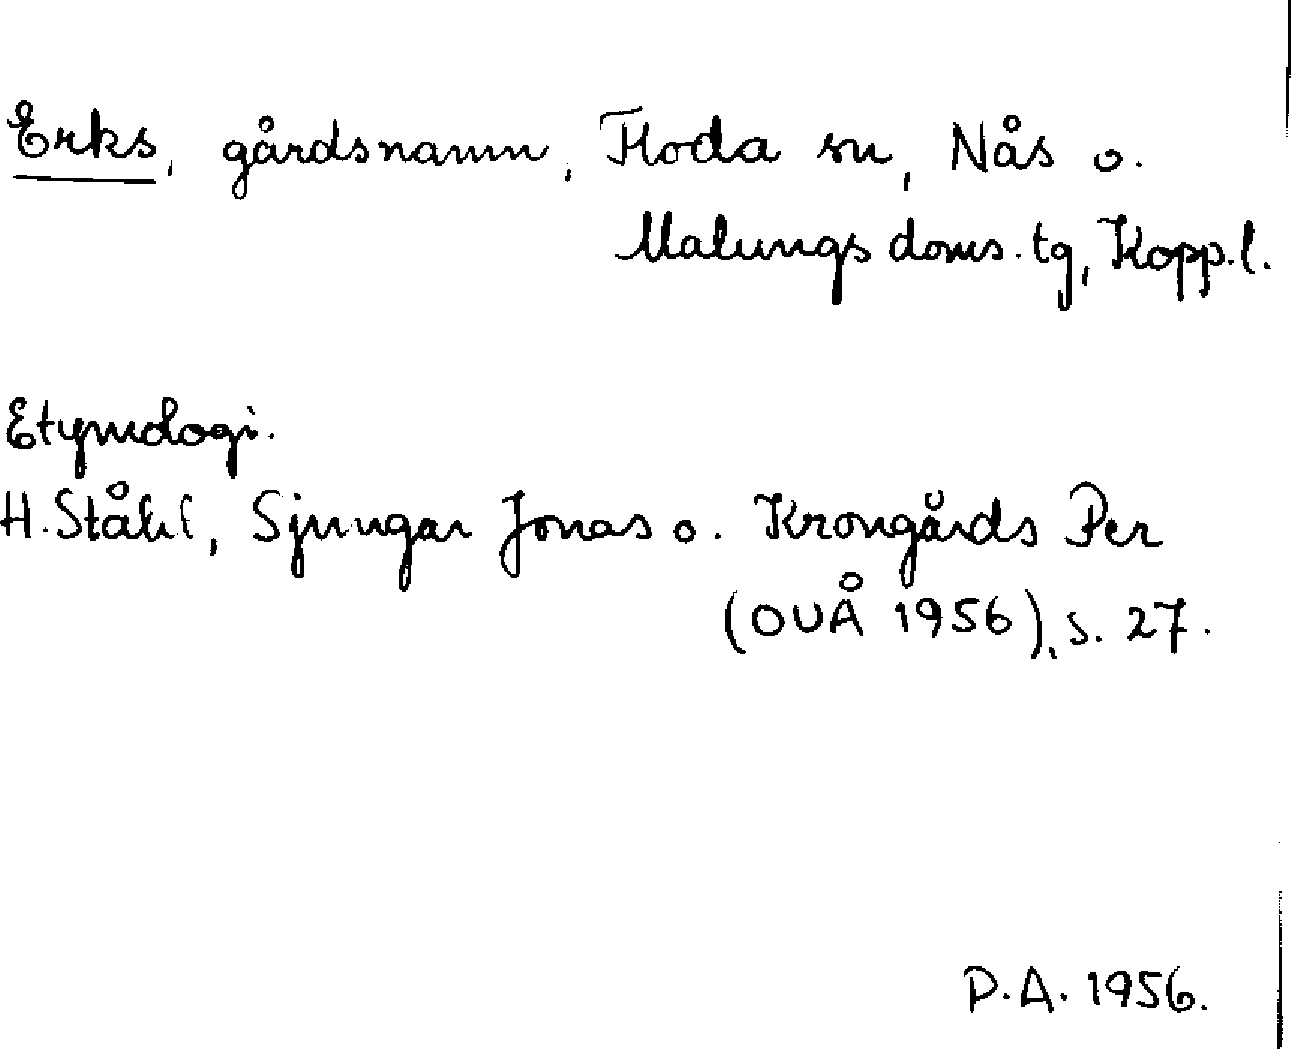 Erks, gårdsnamn, Floda sn, Nås o.
Malungs doms.tg, Kopp.l.
Etymologi.
H. Ståhl, Sjungar Jonas o. Krongårds Per
(OUÅ 1956), s. 27.
P.A. 1956.